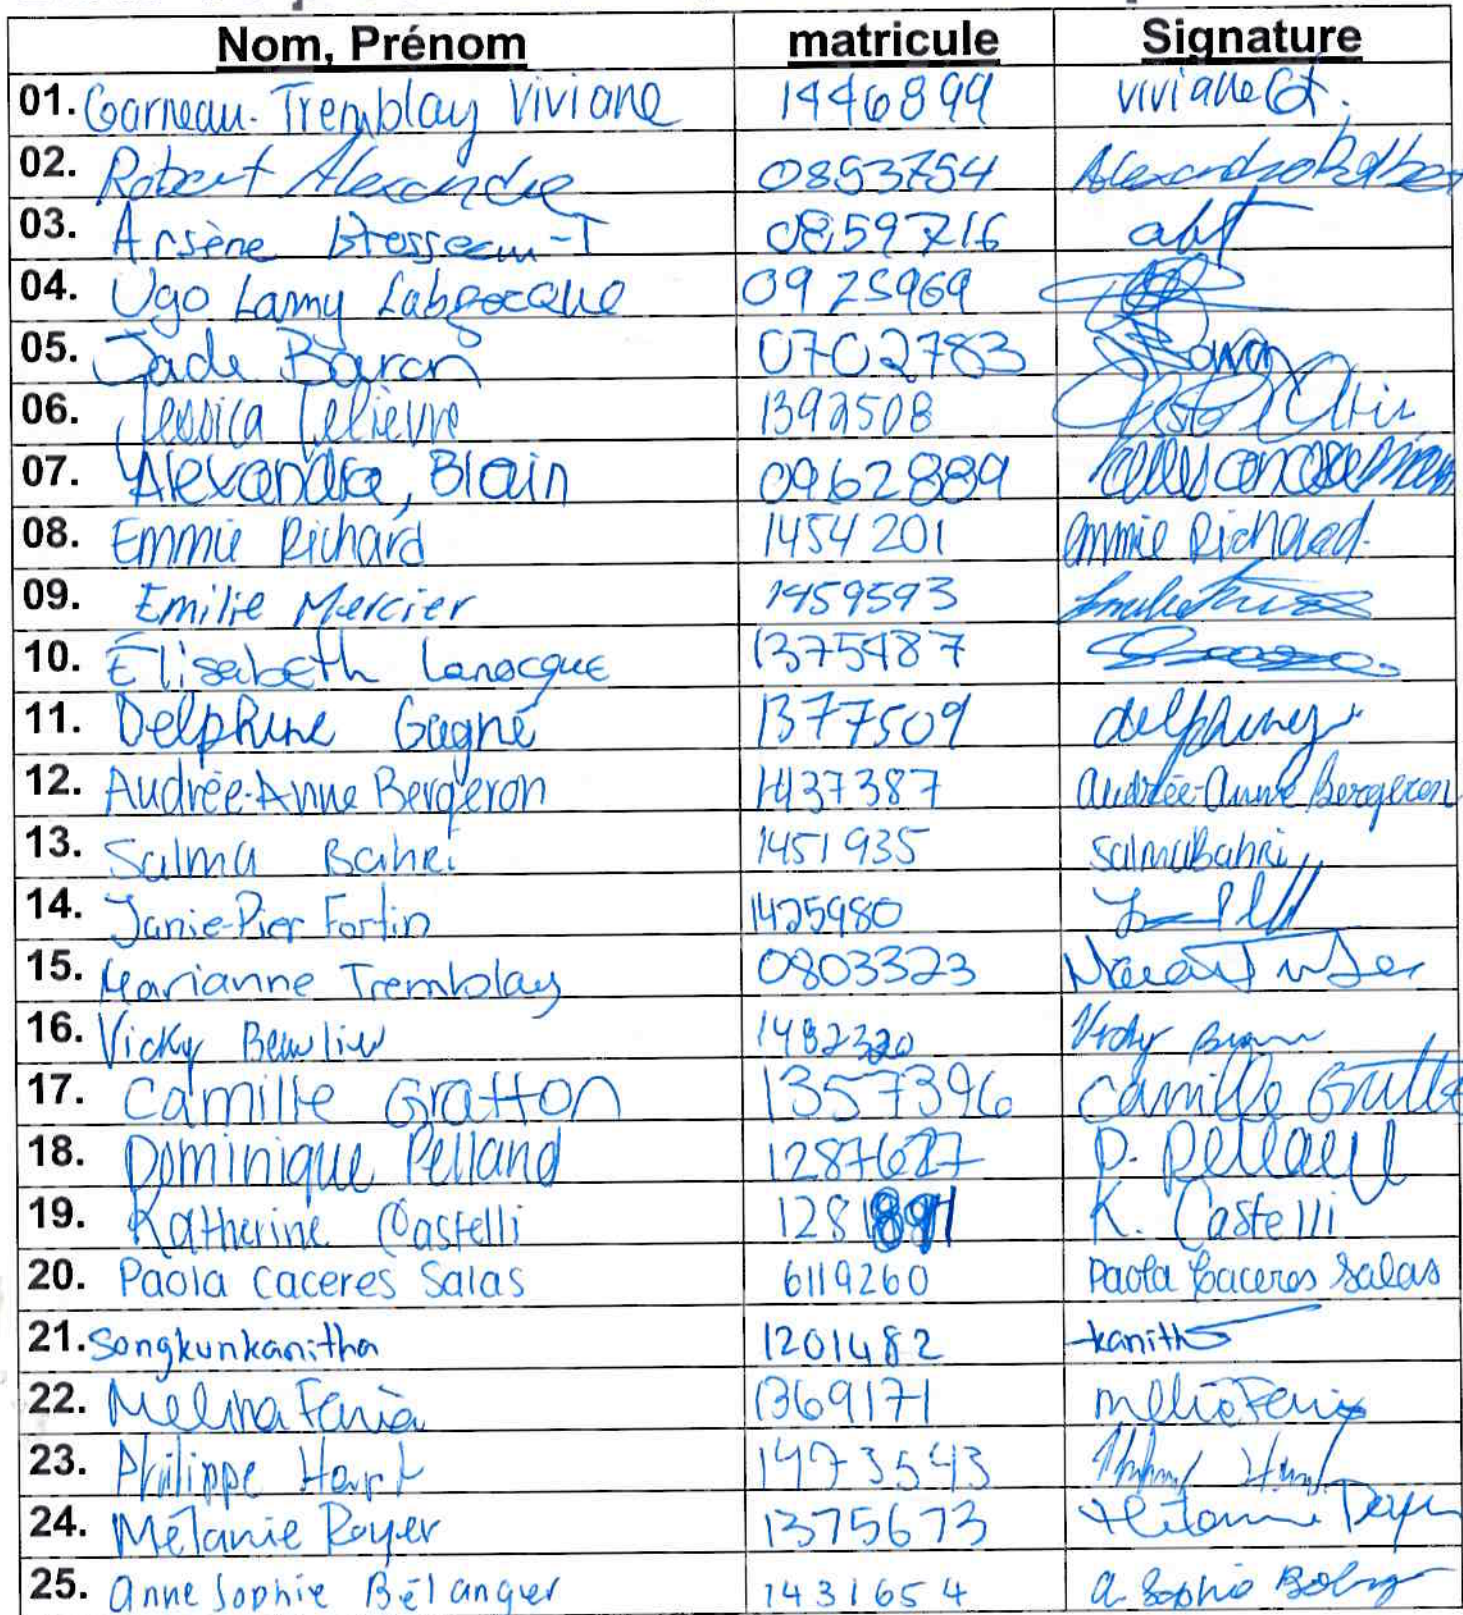 Nom, Prénom matricule Signature
01. Garneau-Tremblay Viviane 1446899 viviane Gt.
02. Robert Alexandre 0853754
03. Arsène Brosseau-T 0859716 abt
04. Ugo Lamy Labrecque 0925969
05. Jade Baron 0702783 Baron
06. Jessica Lelievre 1392508
07. Alexandra, Blain 0962889
08. Emmie Richard 1454201 Emmie Richard.
09. Emilie Mercier 1459593
10. Élisabeth Larocque 1375487
11. Delphine Gagné 1377509
12. Audrée-Anne Bergeron 1437387 Audrée-Anne Bergeron
13. Salma Bahri 1451935 Salma Bahri
14. Janie-Pier Fortin 1425980
15. Marianne Tremblay 0803323
16. Vicky Beaulieu 1482320 Vicky
17. Camille Gratton 1357396 Camille Gratto
18. Dominique Pelland 1287627 D. Pelland
19. Katherine Castelli 1281891 K. Castelli
20. Paola Caceres Salas 6119260 Paola Caceres Salas
21. Songkunkanitha 1201482 kanitha
22. Melina Feria 1369171
23. Philippe Hart 1473543
24. Mélanie Royer 1375673
25. Anne Sophie Bélanger 1431654